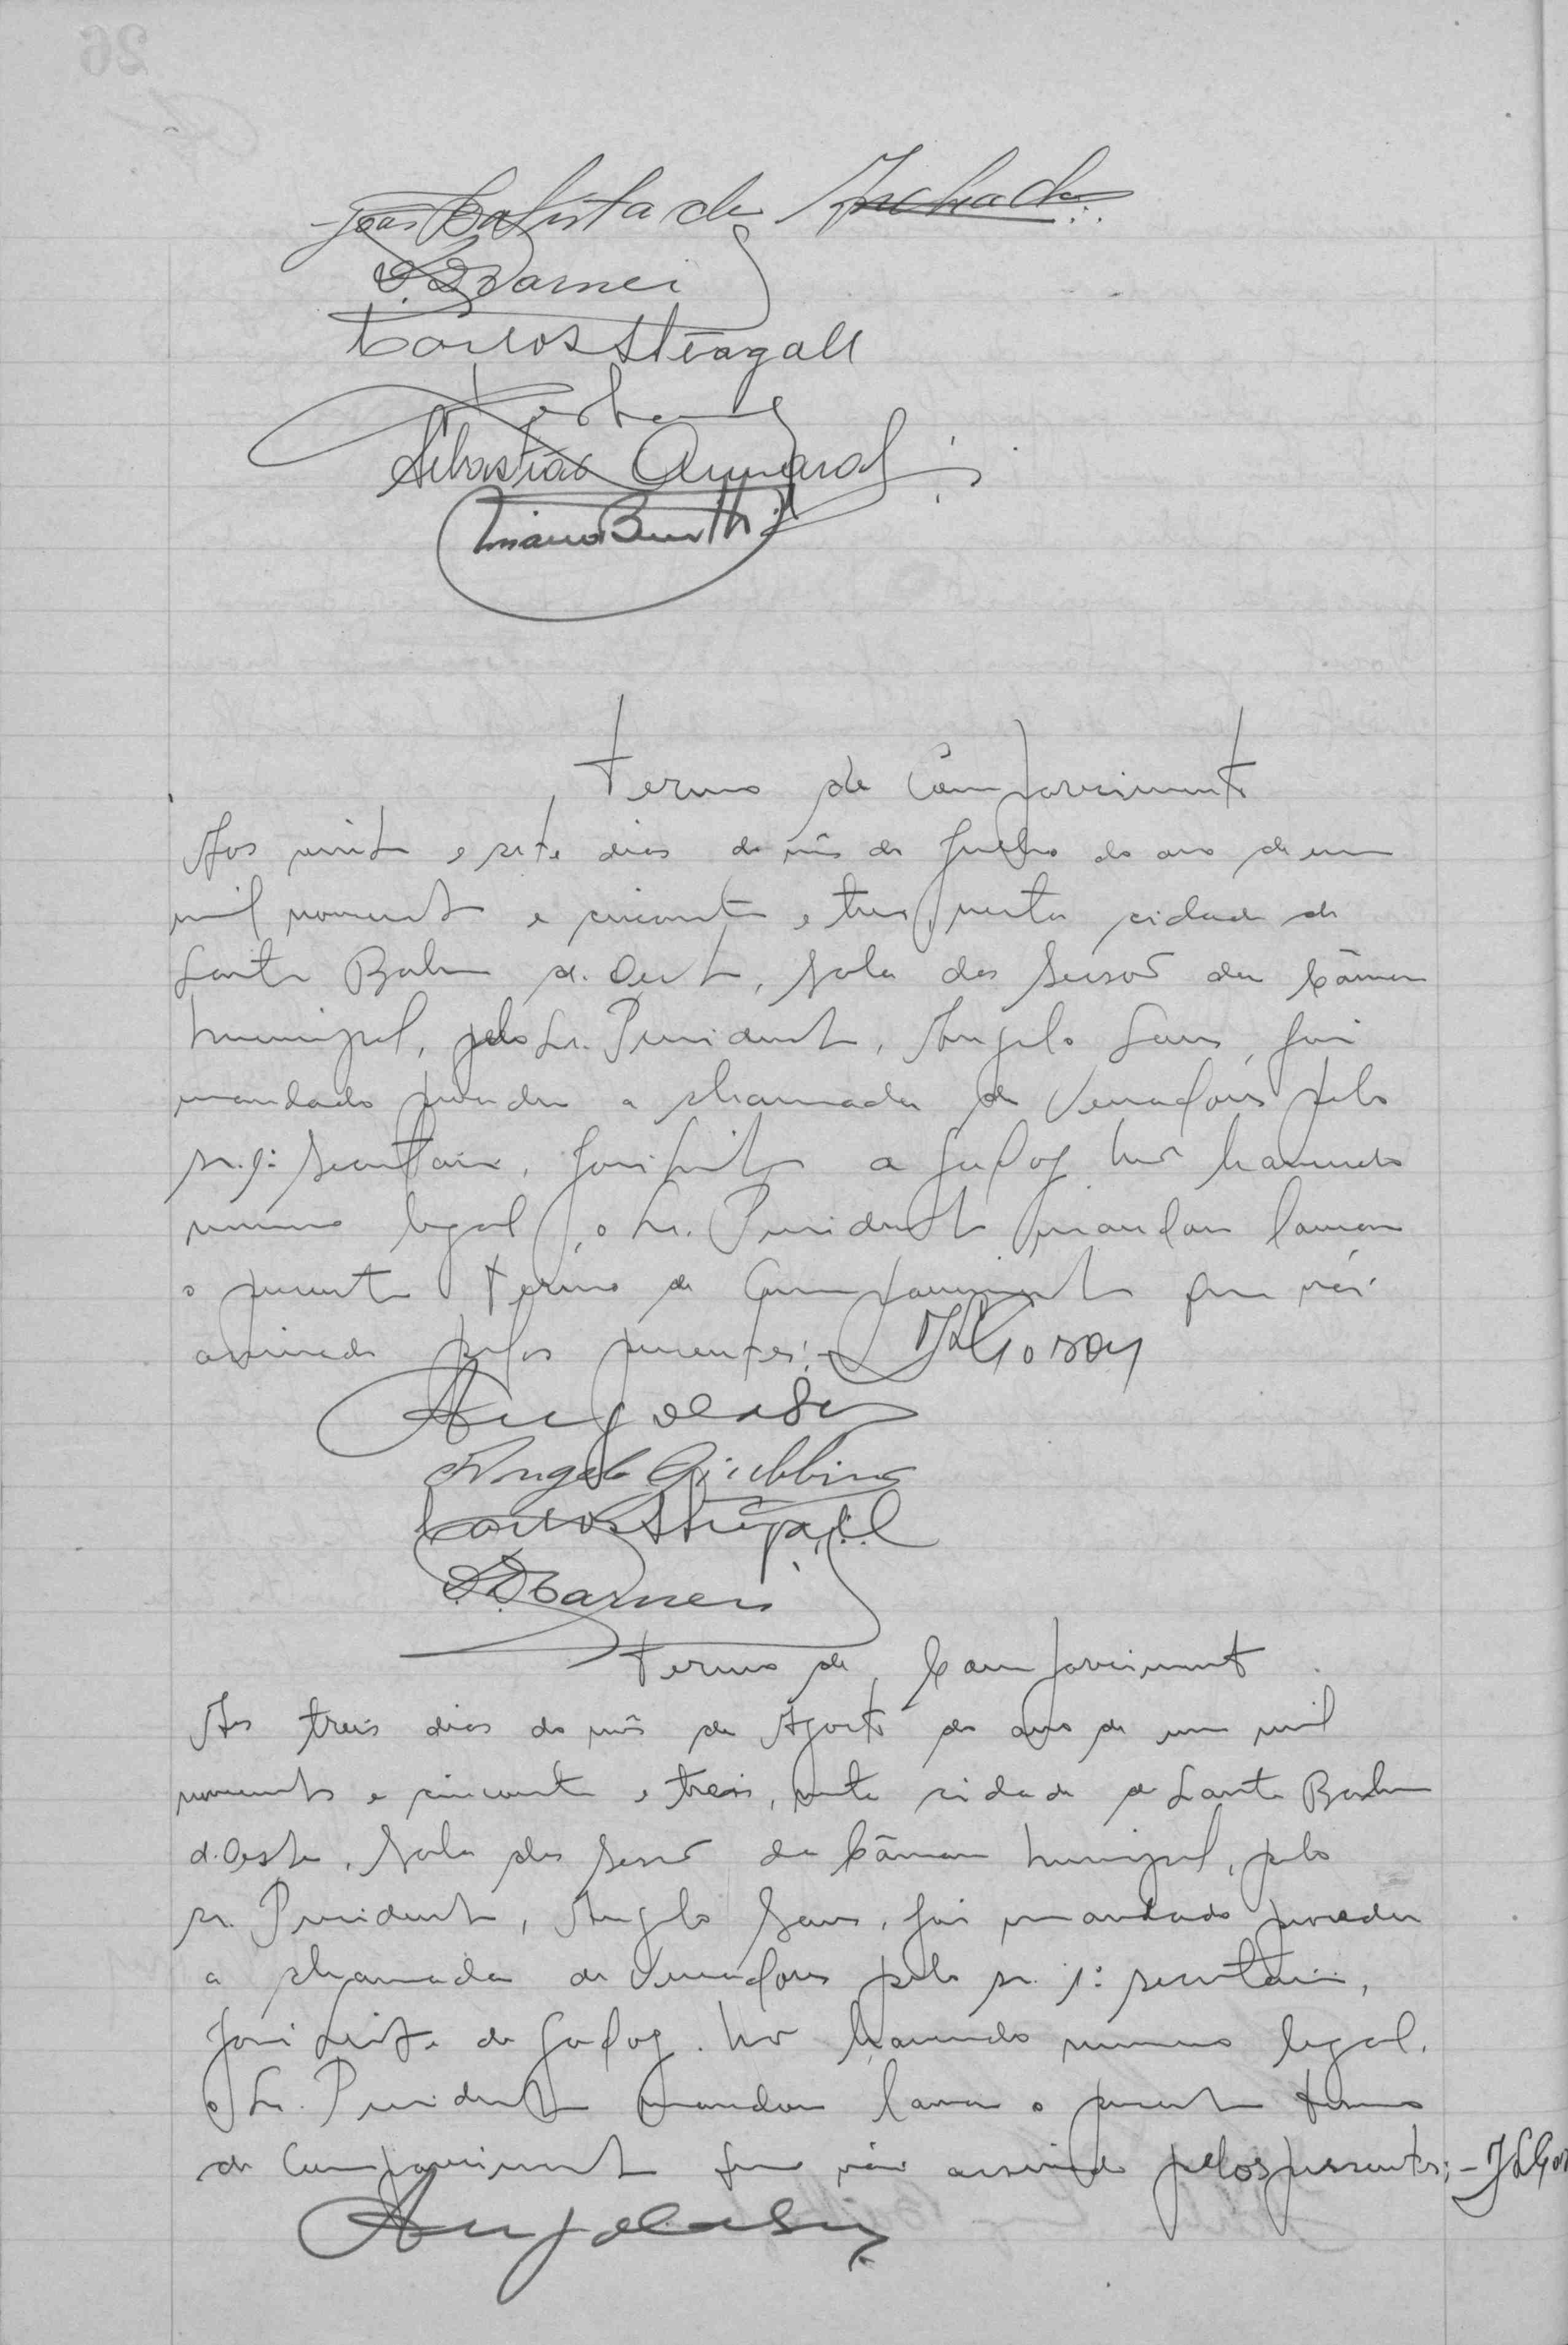 João Batista de Machado
Carlos Steagall
Sebastião Amaral
Termo de Comparecimento
Aos vinte e sete dias do mês de Julho do ano de um
mil novecentos e cincoenta e tres, nesta cidade de
Santa Barbara d'Oeste, sala das Sessões da Câmara
Municipal, pelo Sr. Presidente, Angelo Sans, foi
mandado proceder a chamada de Vereadores pelo
sr. 1º Secretario, José Leite de Godoy. Não havendo
numero legal, o Sr. Presidente mandou lavrar
o presente termo de Comparecimento que vai
assinado pelos presentes:- JLGodoy
Angelo Sans
Angelo Giubbina
Carlos Steagall
Termo de Comparecimento
Aos treis dias do mês de Agosto do ano de um mil
novecentos e cincoenta e treis, nesta cidade de Santa Barbara
d'Oeste, sala das Sessões da Câmara Municipal, pelo
sr. Presidente, Angelo Sans, foi mandado proceder
a chamada de Vereadores pelo sr. 1º secretario,
José Leite de Godoy. Não havendo numero legal,
o Sr. Presidente mandou lavrar o presente termo
de Comparecimento que vai assinado pelos presentes:- JLGod
Angelo Sans